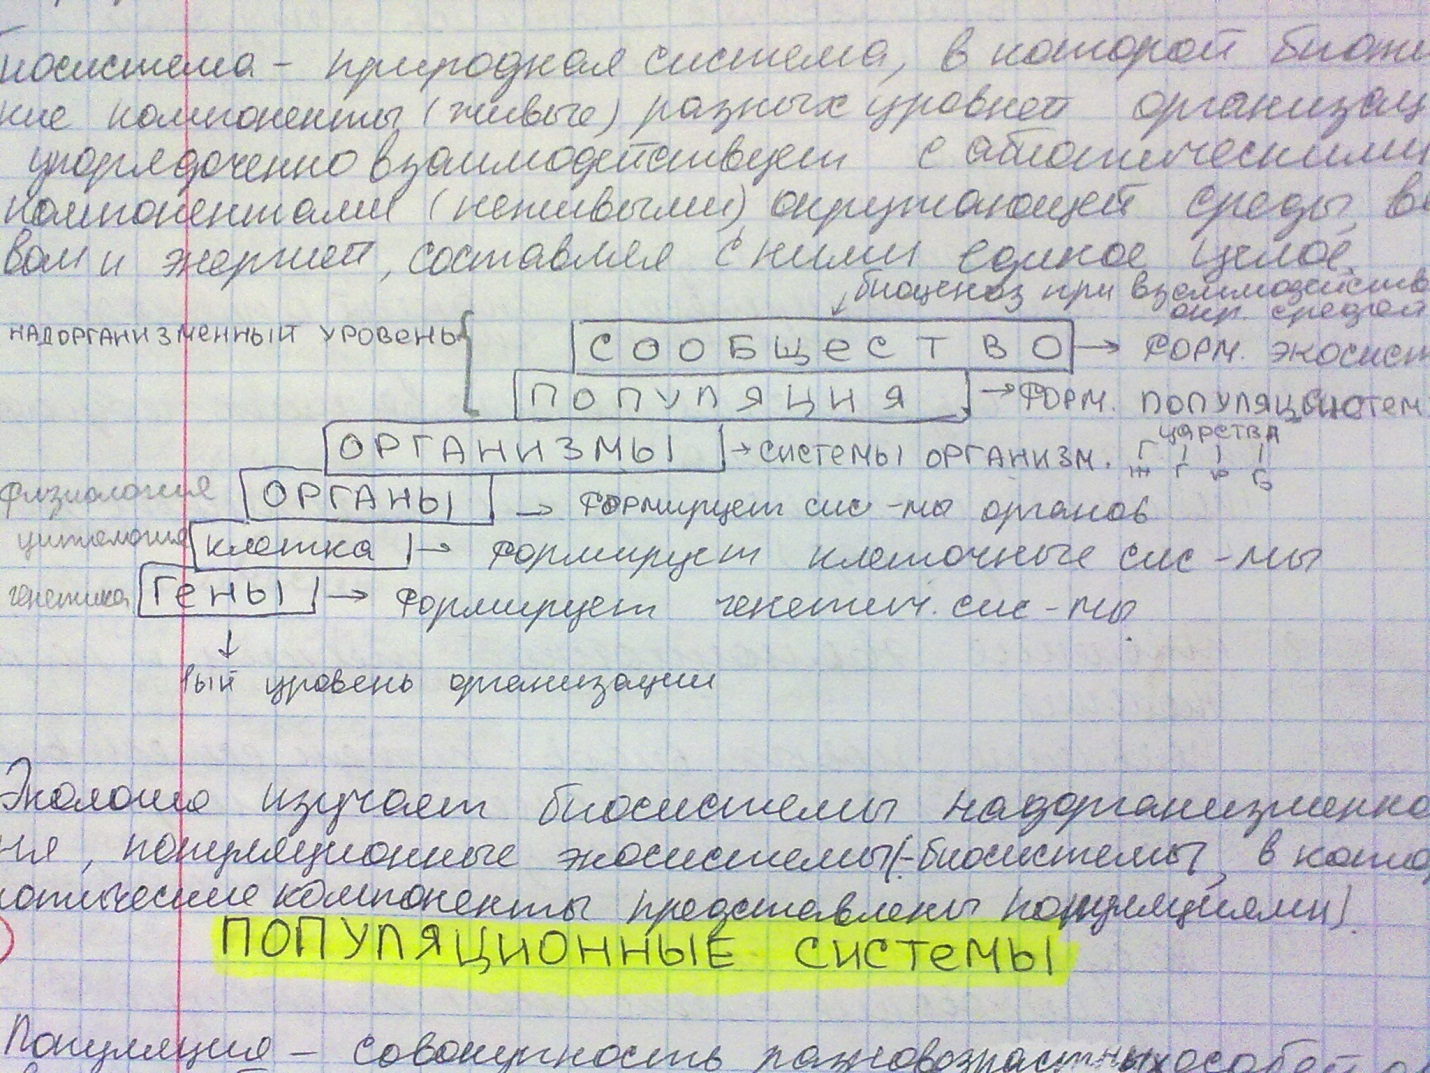 биосистема – природная система, в которой биоти
кие компоненты (живые) разных уровней организац
упорядоченно взаимодействует с абиотическими
компонентами (неживыми) окружающей среды, ве
вом и энергией, составляя с ними единое целое.
биоценоз при взаимодейств
окр. средой
НАДОРГАНИЗМЕННЫЙ УРОВЕНЬ
СООБЩЕСТВО → ФОРМ. ЭКОСИСТ
ПОПУЛЯЦИЯ → ФОРМ. ПОПУЛЯЦ. СИСТЕМ
ЦАРСТВА
ОРГАНИЗМЫ → СИСТЕМЫ ОРГАНИЗМ. Ж Г Р Б
физиология ОРГАНЫ → Формирует сис-мы органов
цитология клетка → Формирует клеточные сис-мы
генетика Гены → Формирует генетич. сис-мы.
↓
1ый уровень организации
Экология изучает биосистемы надорганизменно
ня, популяционные экосистемы (-биосистемы, в кото
иотические компоненты представлены популяциями).
ПОПУЛЯЦИОННЫЕ СИСТЕМЫ
Популяция – совокупность разновозрастных особей